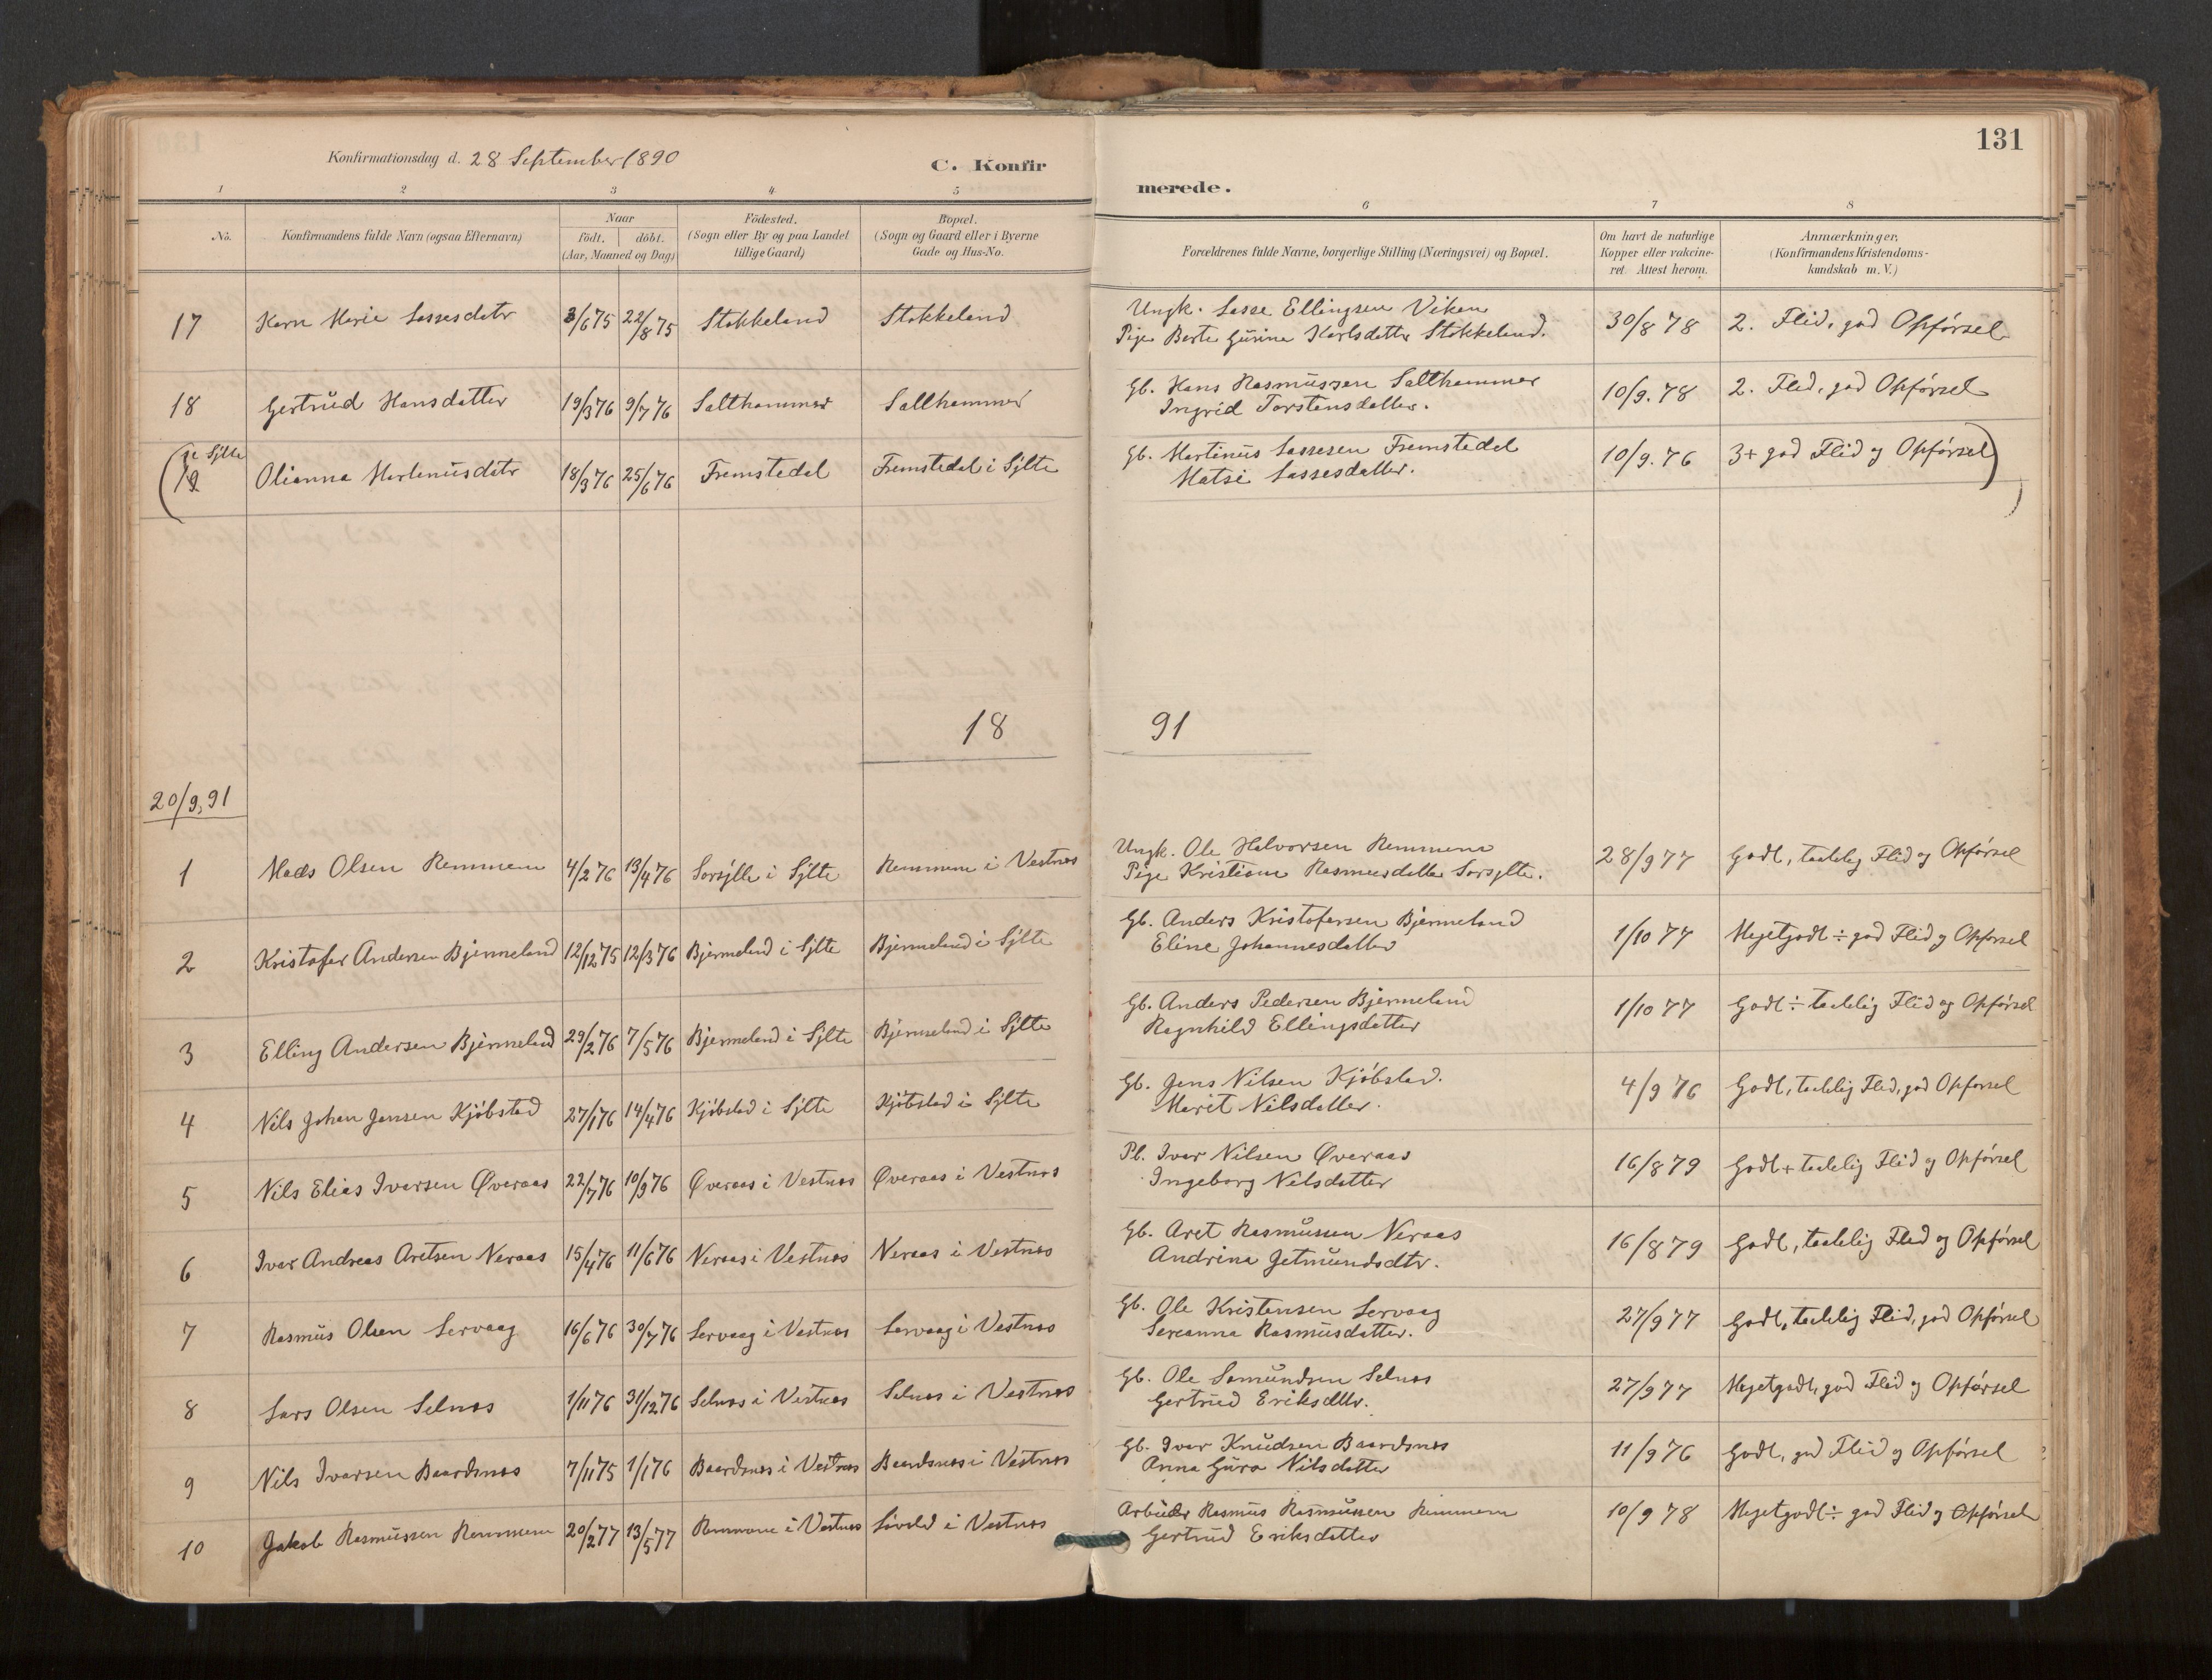 131
Konfirmationsdag d. 28 September 1890
C. Konfirmerede.
1 2 3 4 5 6 7 8
No. Konfirmandens fulde Navn (ogsaa Efternavn) Naar födt. döbt. (Aar, Maaned og Dag) Födested. (Sogn eller By og paa Landet tillige Gaard) Bopæl. (Sogn og Gaard eller i Byerne Gade og Hus-No. Forældrenes fulde Navne, borgerlige Stilling (Næringsvei) og Bopæl. Om havt de naturlige Kopper eller vakcineret Attest herom. Anmærkninger, (Konfirmandens Kristendomskundskab m. V.)
17 Karn Marie Lassesdatr 3/6 75 22/8 75 Stokkeland Stokkeland Ungk. Lasse Ellingsen Viken 30/8 78 2. Flid, god Opførsel
Pige Berte Gurine Karlsdatter Stokkeland.
18 Gertrud Hansdatter 19/3 76 9/7 76 Salthammer Salthammer Gb. Hans Rasmussen Salthammer 10/9. 78 2. Flid, god Opførsel
Ingrid Torstensdatter.
(i Sylte
19 Olianna Martinusdatr 18/3 76 25/6 76 Fremstedal Fremstedal i Sylte Gb. Martinus Lassesen Fremstedal 10/9. 76 3+ god Flid og Opførsel)
Matsi Lassesdatter.
18 91
20/9, 91
1 Mads Olsen Remmem 4/2 76 13/4 76 Sorsylte i Sylte Remmem i Vestnes Ungk. Ole Halvorsen Remmem 28/9 77 Godt, taalelig Flid og Opførsel
Pige Kristiane Rasmusdatter Sorsylte.
2 Kristofer Andersen Bjermeland 12/12 75 12/3 76 Bjermeland i Sylte Bjermeland i Sylte Gb. Anders Kristofersen Bjermeland 1/10 77 Megetgodt ÷ god Flid og Opførsel
Eline Johannesdatter
3 Elling Andersen Bjermeland 29/2 76 7/5 76 Bjermeland i Sylte Bjermeland i Sylte Gb. Anders Pedersen Bjermeland 1/10 77 Godt ÷ taalelig Flid og Opførsel
Ragnhild Ellingsdatter
4 Nils Johan Jensen Kjøbstad 27/1 76 14/4 76 Kjøbstad i Sylte Kjøbstad i Sylte Gb. Jens Nilsen Kjøbstad. 4/9 76 Godt, taalelig Flid, god Opførsel
Marit Nilsdatter.
5 Nils Elias Ivarsen Øveraas 22/7 76 10/9 76 Øveraas i Vestnes Øveraas i Vestnes Pl. Ivar Nilsen Øveraas 16/8 79 Godt + taalelig Flid og Opførsel
Ingeborg Nilsdatter
6 Ivar Andreas Aretsen Neraas 15/4 76 11/6 76 Neraas i Vestnes Neraas i Vestnes Gb. Aret Rasmussen Neraas 16/8 79 Godt, taalelig Flid og Opførsel
Andrina Getmundsdtr.
7 Rasmus Olsen Servaag 16/6 76 30/7 76 Servaag i Vestnes Servaag i Vestnes Gb. Ole Kristensen Servaag 27/9 77 Godt, taalelig Flid, god Opførsel
Sereanna Rasmusdatter.
8 Lars Olsen Selnes 1/11 76 31/12 76 Selnes i Vestnes Selnes i Vestnes Gb. Ole Samundsen Selnes 27/9 77 Megetgodt, god Flid og Opførsel
Gertrud Eriksdtter.
9 Nils Ivarsen Baardsnes 7/11 75 1/1 76 Baardsnes i Vestnes Baardsnes i Vestnes Gb. Ivar Knudsen Baardsnes 11/9 76 Godt, god Flid og Opførsel
Anna Gura Nilsdatter
10 Jakob Rasmussen Remmem 20/2 77 13/5 77 Remmem i Vestnes i Vestnes Arbeider Rasmus Rasmussen Remmem 10/9 78 Megetgodt ÷ god Flid og Opførsel
Gertrud Eriksdatter